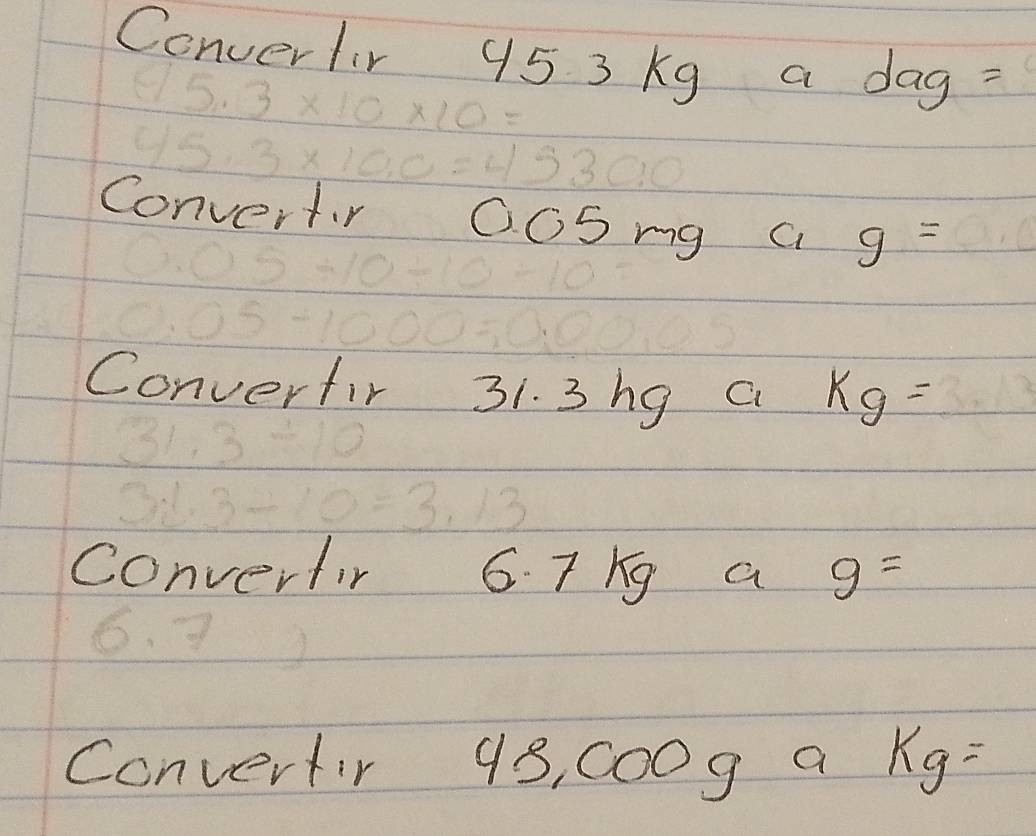 Convertir 45.3 Kg a dag =
45.3 × 10 × 10 =
45.3 × 100 = 4530.0
Convertir 0.05 mg a g =
0.05 ÷ 10 ÷ 10 ÷ 10 =
0.05 ÷ 1000 = 0.00005
Convertir 31.3 hg a Kg = 3.13
31.3 ÷ 10
31.3 ÷ 10 = 3.13
Convertir 6.7 Kg a g =
6.7
Convertir 48,000 g a Kg =